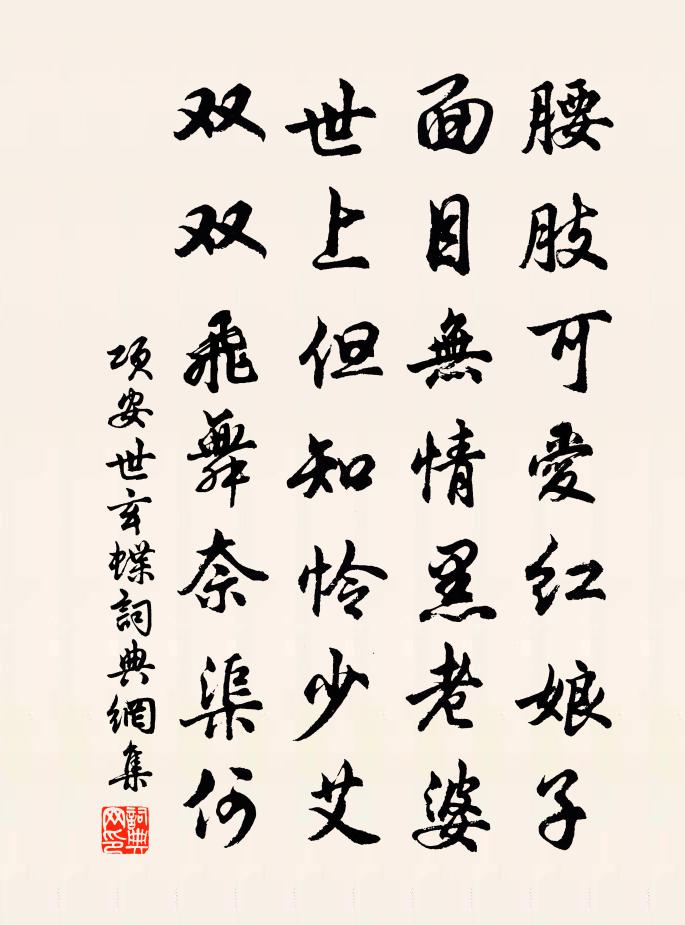 腰肢可愛红娘子
面目無情黑老婆
世上但知怜少艾
双双飛舞奈渠何
项安世玄蝶詞典網集
詞典
网印